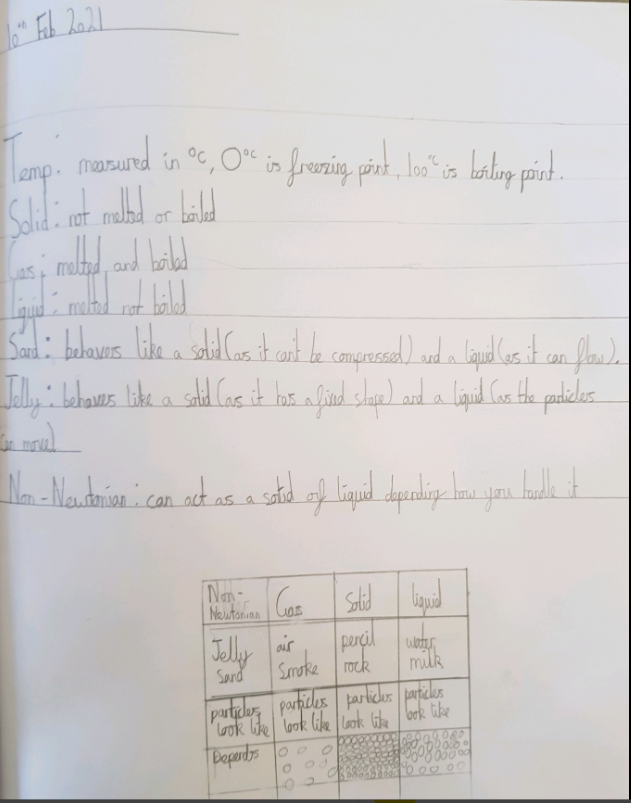 10th Feb 2021
Temp: measured in °c, 0°c is freezing point, 100°c is boiling point.
Solid: not melted or boiled
Gas: melted and boiled
Liquid: melted not boiled
Sand: behavers like a solid (as it cant be compressed) and a liquid (as it can flow).
Jelly: behaves like a solid (as it has a fixed shape) and a liquid (as the particles
can move)
Non-Newtonian: can act as a solid of liquid depending how you handle it
Non-Newtonian Gas Solid liquid
Jelly air pencil water
Sand Smoke rock milk
particles particles particles particles
look like look like look like look like
Depends